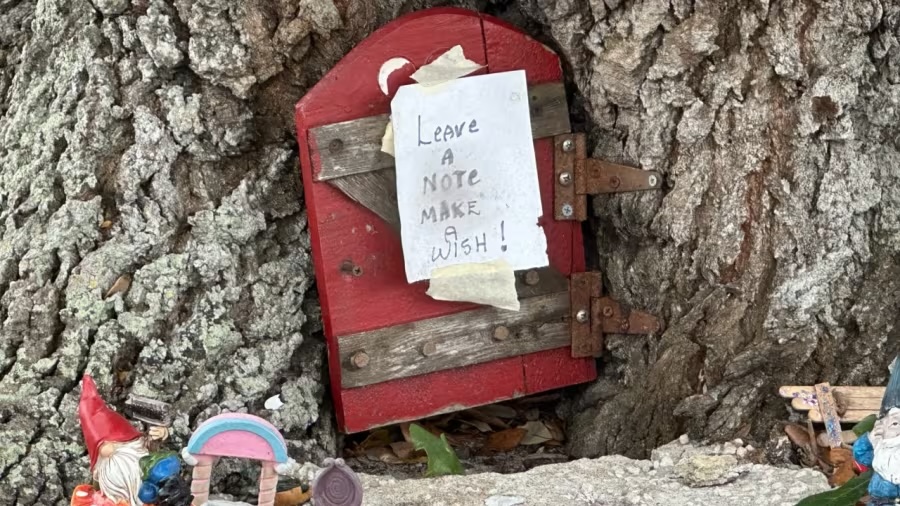 Leave
A
NOTE
MAKE
a
WISH!